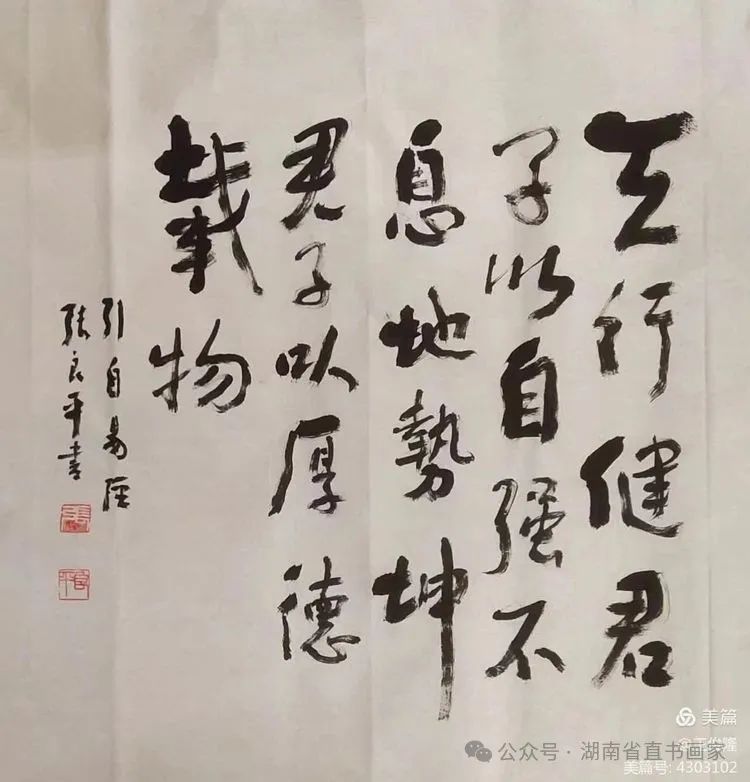 天行健君
子以自强不
息地勢坤
君子以厚德
載物
引自易经
张良平書
美篇
美篇号: 4303102
公众号·湖南省直书画家